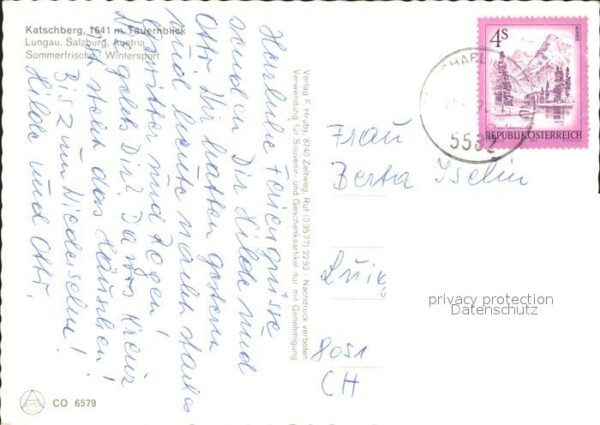 Katschberg, 1641 m, Tauernblick
Lungau, Salzburg, Austria
Sommerfrische Wintersport
Herzliche Feriengrüsse
senden Dir Hilde und
Otto. Wir hatten gestern
und heute nacht starkes
Gewitter und Regen!
Wie geht's Dir? Da wo Kreuz
ist steht das Häuschen!
Bis zum Wiedersehn!
Hilde und Otto.
Verlag F. Hruby, 8740 Zeltweg, Ruf (0 35 77) 22 92 Nachdruck verboten
Verwendung für Souvenir- und Geschenksartikel nur mit Genehmigung
4S
ALMSEE
REPUBLIK ÖSTERREICH
5582
Frau
Berta Iselin
8051
CH
privacy protection
Datenschutz
CO 6579